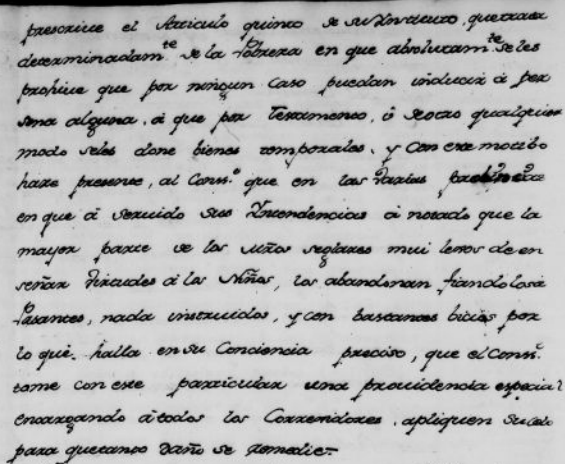 prescrive el Articulo quinto de su Ynstituto, que trata
determinadam.te de la Pobreza en que absolutam.te se les
prohive que por ningun caso puedan inducir à per
sona alguna, à que por Testamento, ò de otro qualquier
modo seles done bienes temporales. y con este motibo
haze presente, al Cons.o que en las varias
en que à servido sus Yntendencias à notado que la
mayor parte de los Mños seglares mui lexos de en
señar virtudes à los Niños, los abandonan fiandolos à
Pasantes, nada instruidos, y con bastantes bicios por
lo que. halla en su Conciencia preciso, que el Cons.o
tome con este particular una providencia especial
encargando à todos los Corregidores. apliquen su celo
para que tanto daño se remedie.